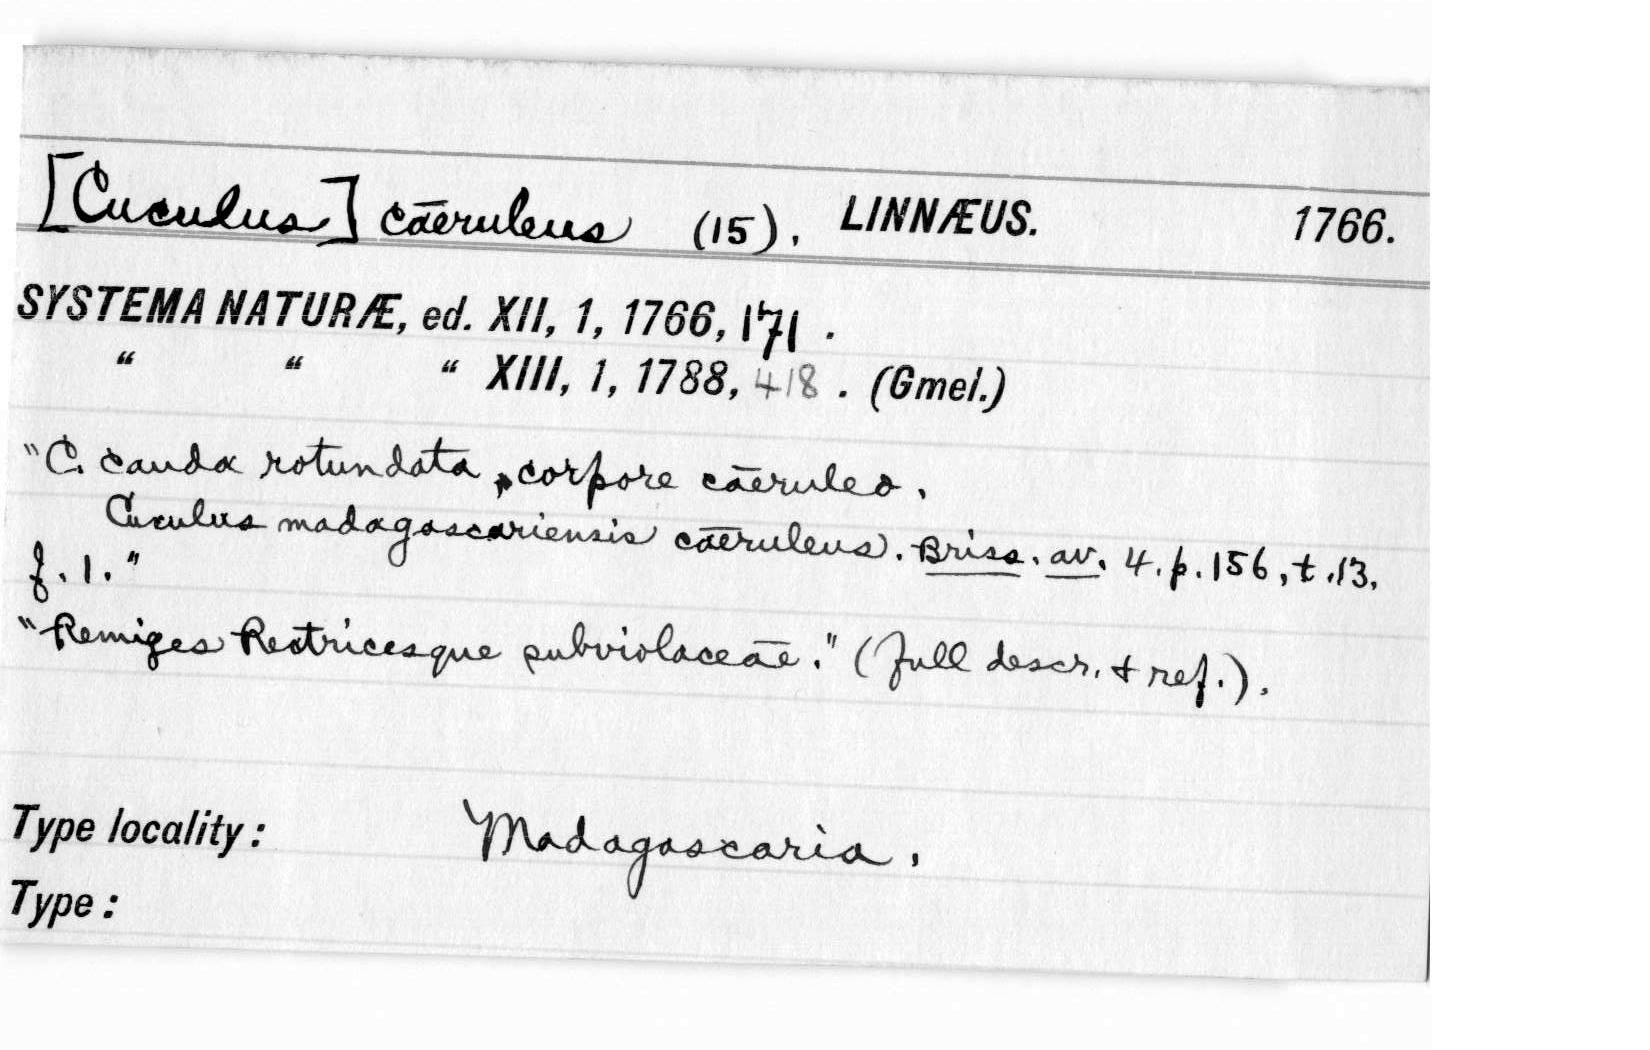 [Cuculus] cāeruleus (15). LINNÆUS. 1766.
SYSTEMA NATURÆ, ed. XII, 1, 1766, 171.
“ “ “ XIII, 1, 1788, 418. (Gmel.)
"C. cauda rotundata, corpore cāeruleo.
Cuculus madagascariensis cāeruleus. Briss. av. 4. p. 156, t. 13.
f. 1."
"Remiges Rectricesque subviolaceāe." (Full descr. & ref.).
Type locality: Madagascaria.
Type: